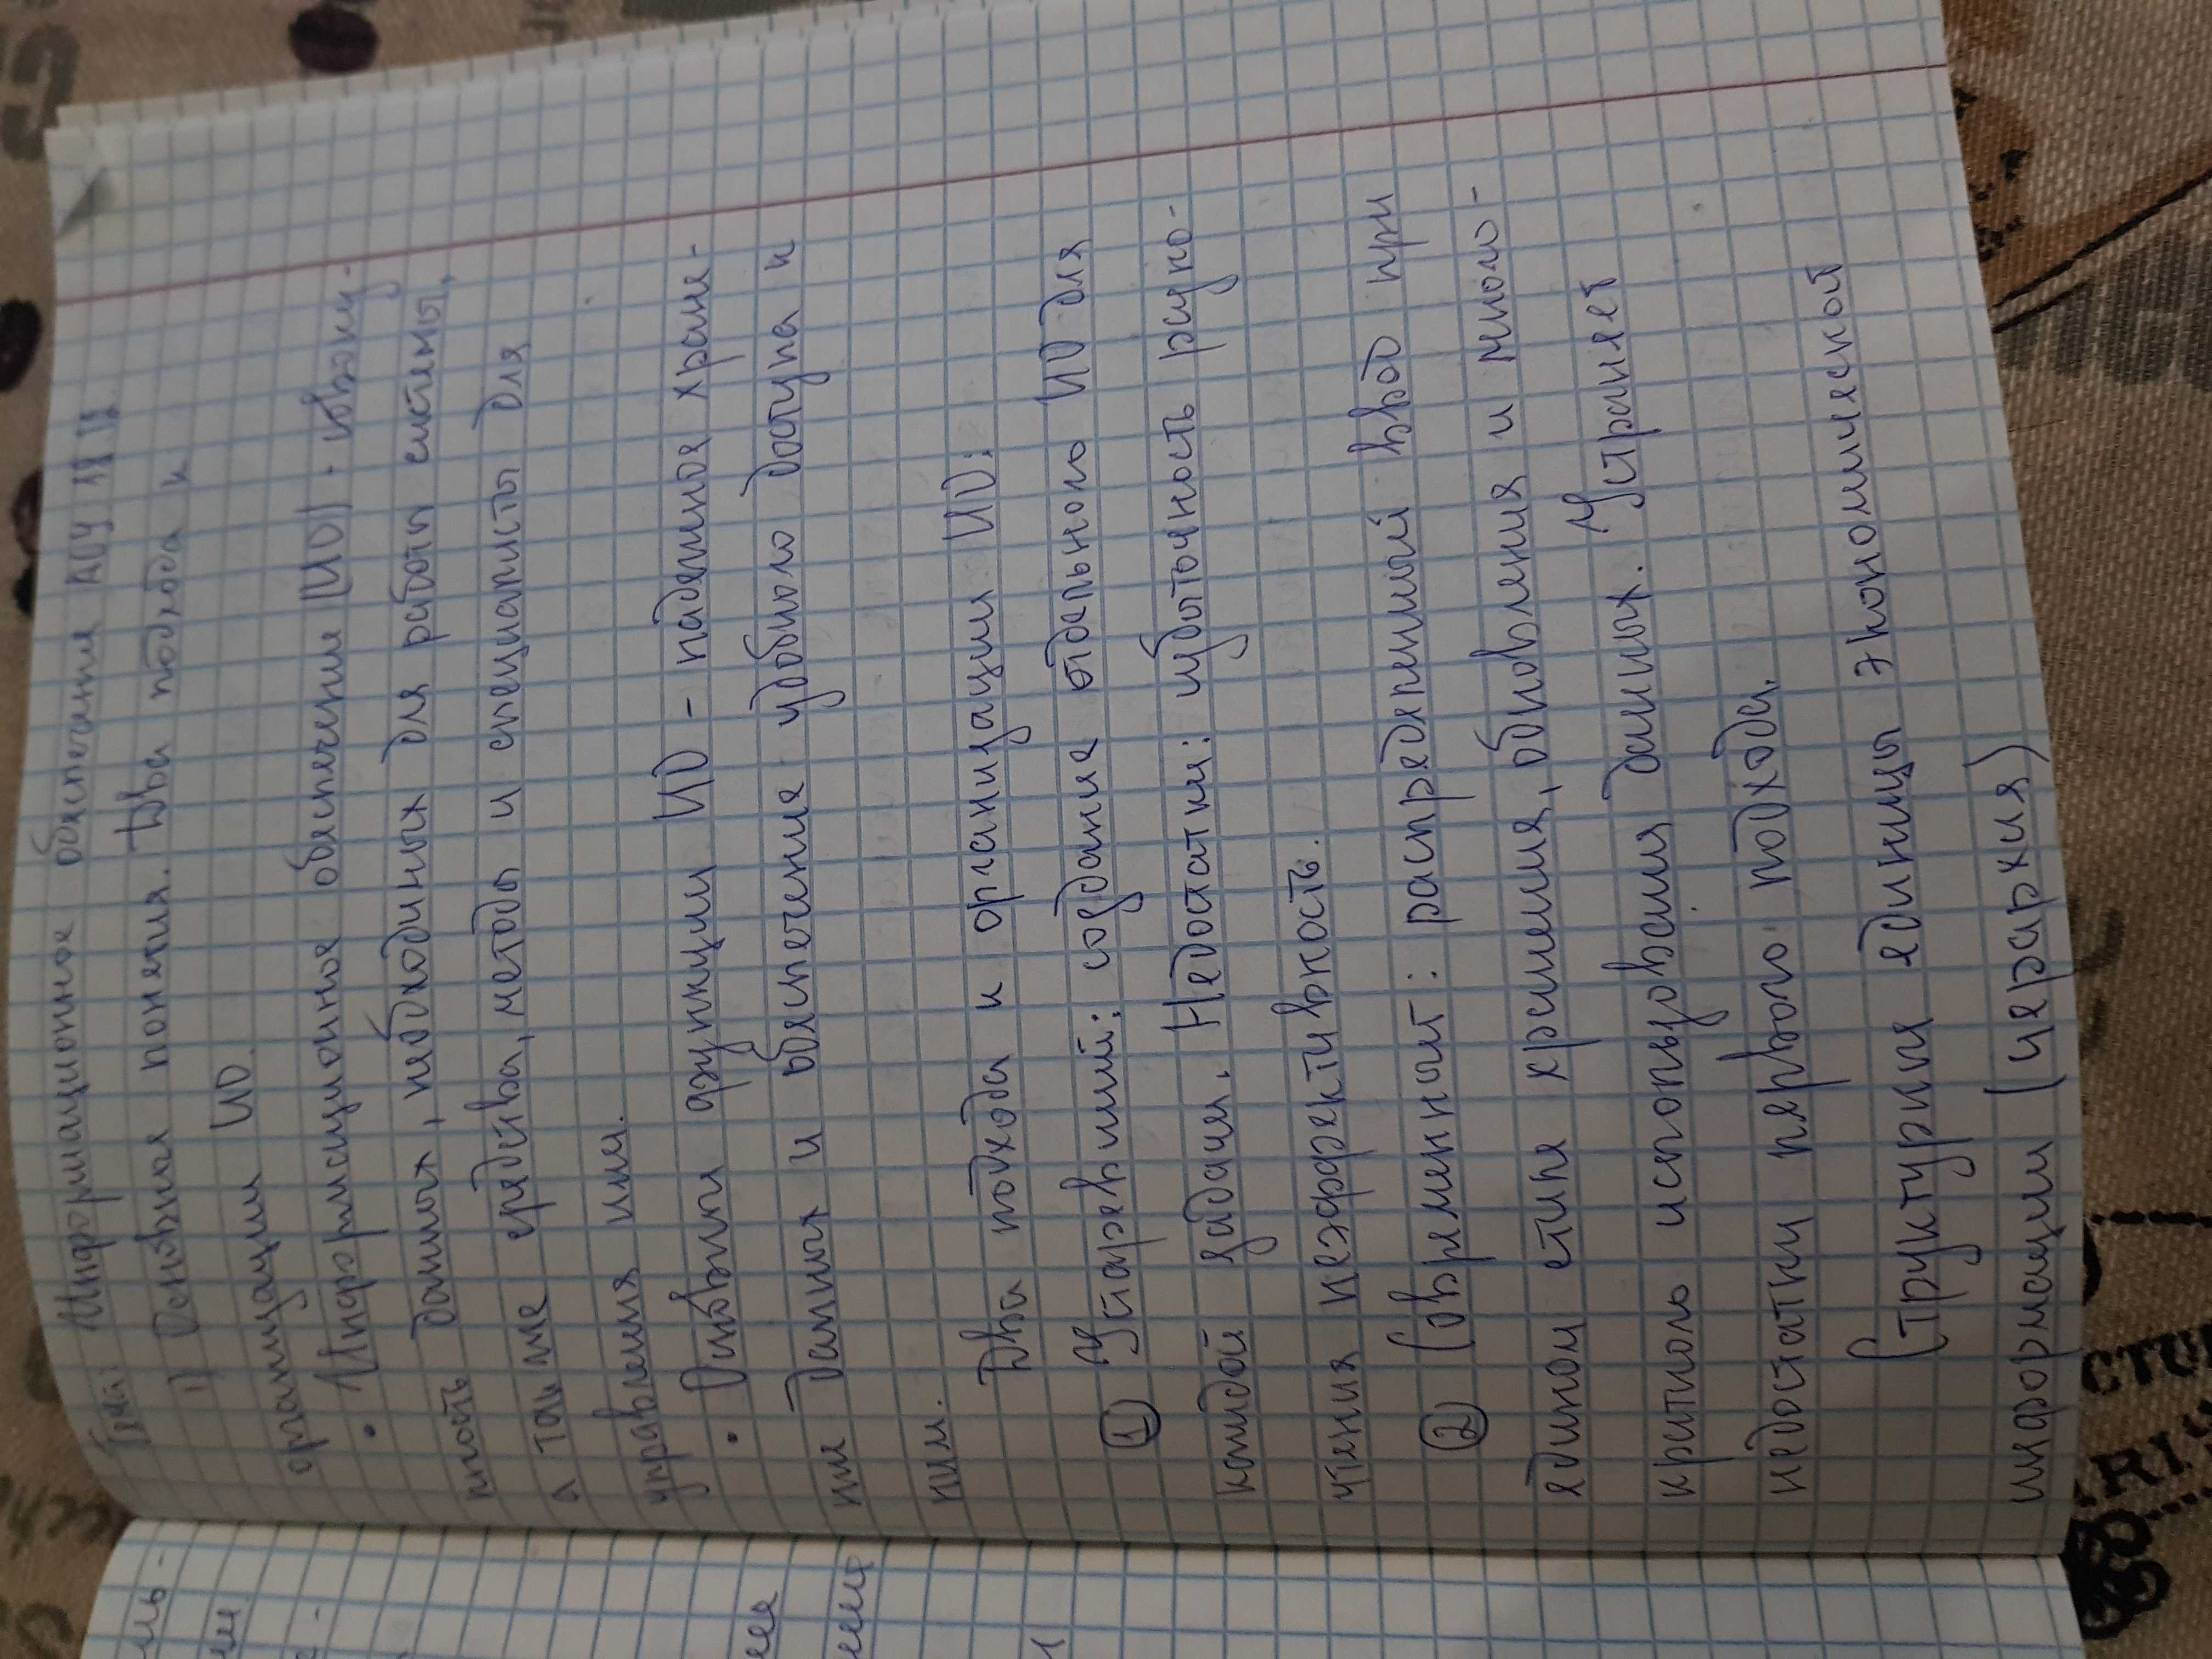 Тема: Информационное обеспечение АСУ
1) Основные понятия. Два подхода к
организации ИО.
• Информационное обеспечение (ИО) - совокуп-
ность данных, необходимых для работы системы,
а также средства, методы и специалисты для
управления ими.
• Основные функции ИО - надежное хране-
ние данных и обеспечение удобного доступа к
ним.
Два подхода к организации ИО:
① Устаревший: создание отдельного ИО для
каждой задачи. Недостатки: избыточность резуль-
чения неэффективность.
② Современный: распределенный ввод при
едином стиле хранения, обновления и много-
кратного использования данных. Устраняет
недостатки первого подхода.
Структурные единицы экономической
информации (иерархия)